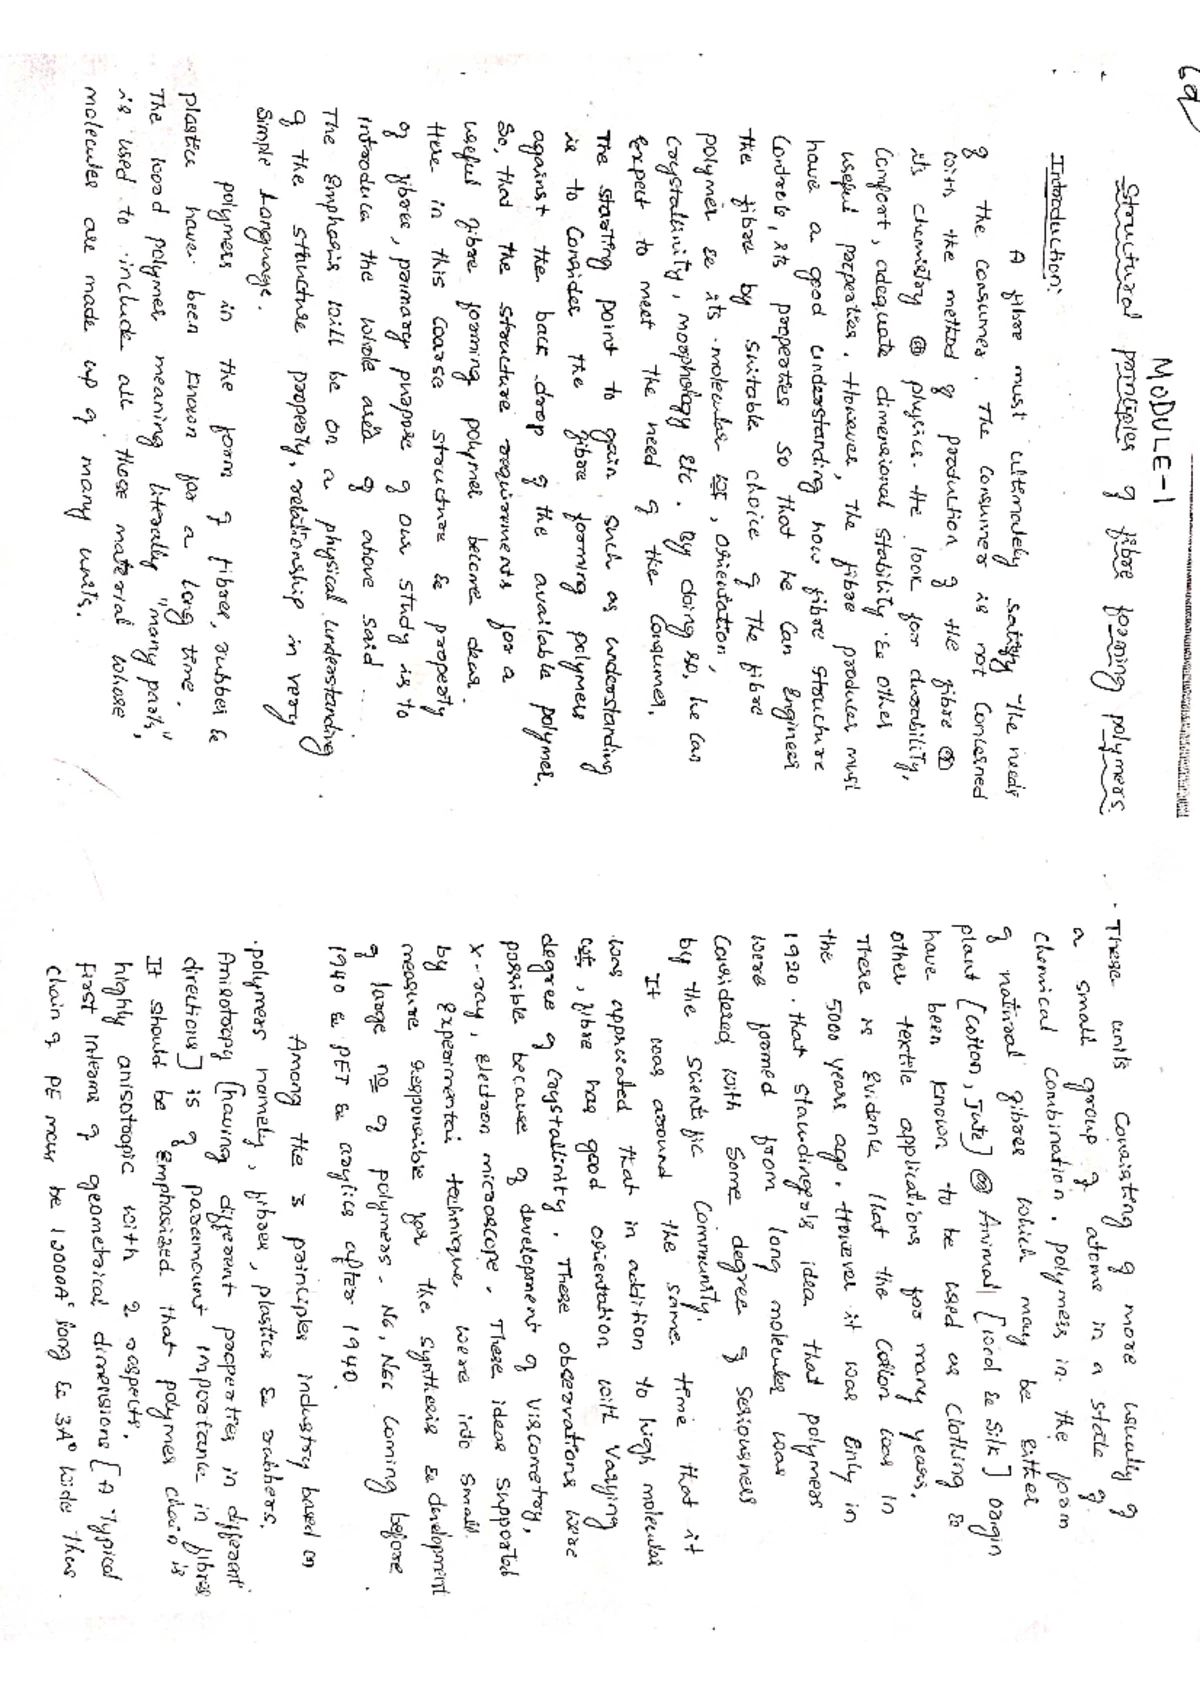 MODULE-1
Structural principles of fibre forming polymers.
Introduction:
A fibre must ultimately satisfy the needs
of the consumer. The consumer is not concerned
with the method of production of the fibre or
its chemistry or physics. He look for durability,
comfort, adequate dimensional stability & other
useful properties. However, The fibre producer must
have a good understanding how fibre structure
controls, its properties so that he can engineer
the fibre by suitable choice of the fibre
polymer & its molecular wt, orientation,
crystallinity, morphology etc. By doing so, he can
expect to meet the need of the consumer.
The starting point to gain such as understanding
is to consider the fibre forming polymers
against the back drop of the available polymer.
So, that the structure requirements for a
useful fibre forming polymer become clear.
Here in this coarse structure & property
of fibres, primary purpose of our study is to
introduce the whole area of above said.
The emphasis will be on a physical understanding
of the structure property, relationship in very
simple Language.
polymers in the form of fibres, rubber &
plastics have been known for a long time.
The word polymer meaning literally "many parts",
is used to include all those material whose
molecules are made up of many units.
These units consisting of more usually of
a small group of atoms in a state of
chemical combination. polymers in the form
of natural fibres which may be either
plant [cotton, Jute] or Animal [wool & silk] origin
have been known to be used as clothing &
other textile applications for many years.
There is evidence that the cotton was in
the 5000 years ago. However it was only in
1920. that idea that polymers
were formed from long molecules was
considered with some degree of seriousness
by the scientific community.
It was around the same time that it
was appriciated that in addition to high molecular
wt, fibre has good orientation with varying
degree of crystallinity. These observations were
possible because of development of viscometry,
x-ray, electron microscope. These ideas supported
by experimental technique were into small
measure responsible for the synthesis & development
of large no of polymers. N6, N66 coming before
1940 & PET & acrylics after 1940.
Among the 3 principles industry based on
polymers namely, fibres, plastics & rubbers.
Anisotropy [having different properties in different
directions] is of paramount importance in fibres
It should be emphasized that polymer chain is
highly anisotropic with 2 respects.
First interms of geometrical dimensions [A typical
chain of PE may be 10000A° long & 3A° wide thus